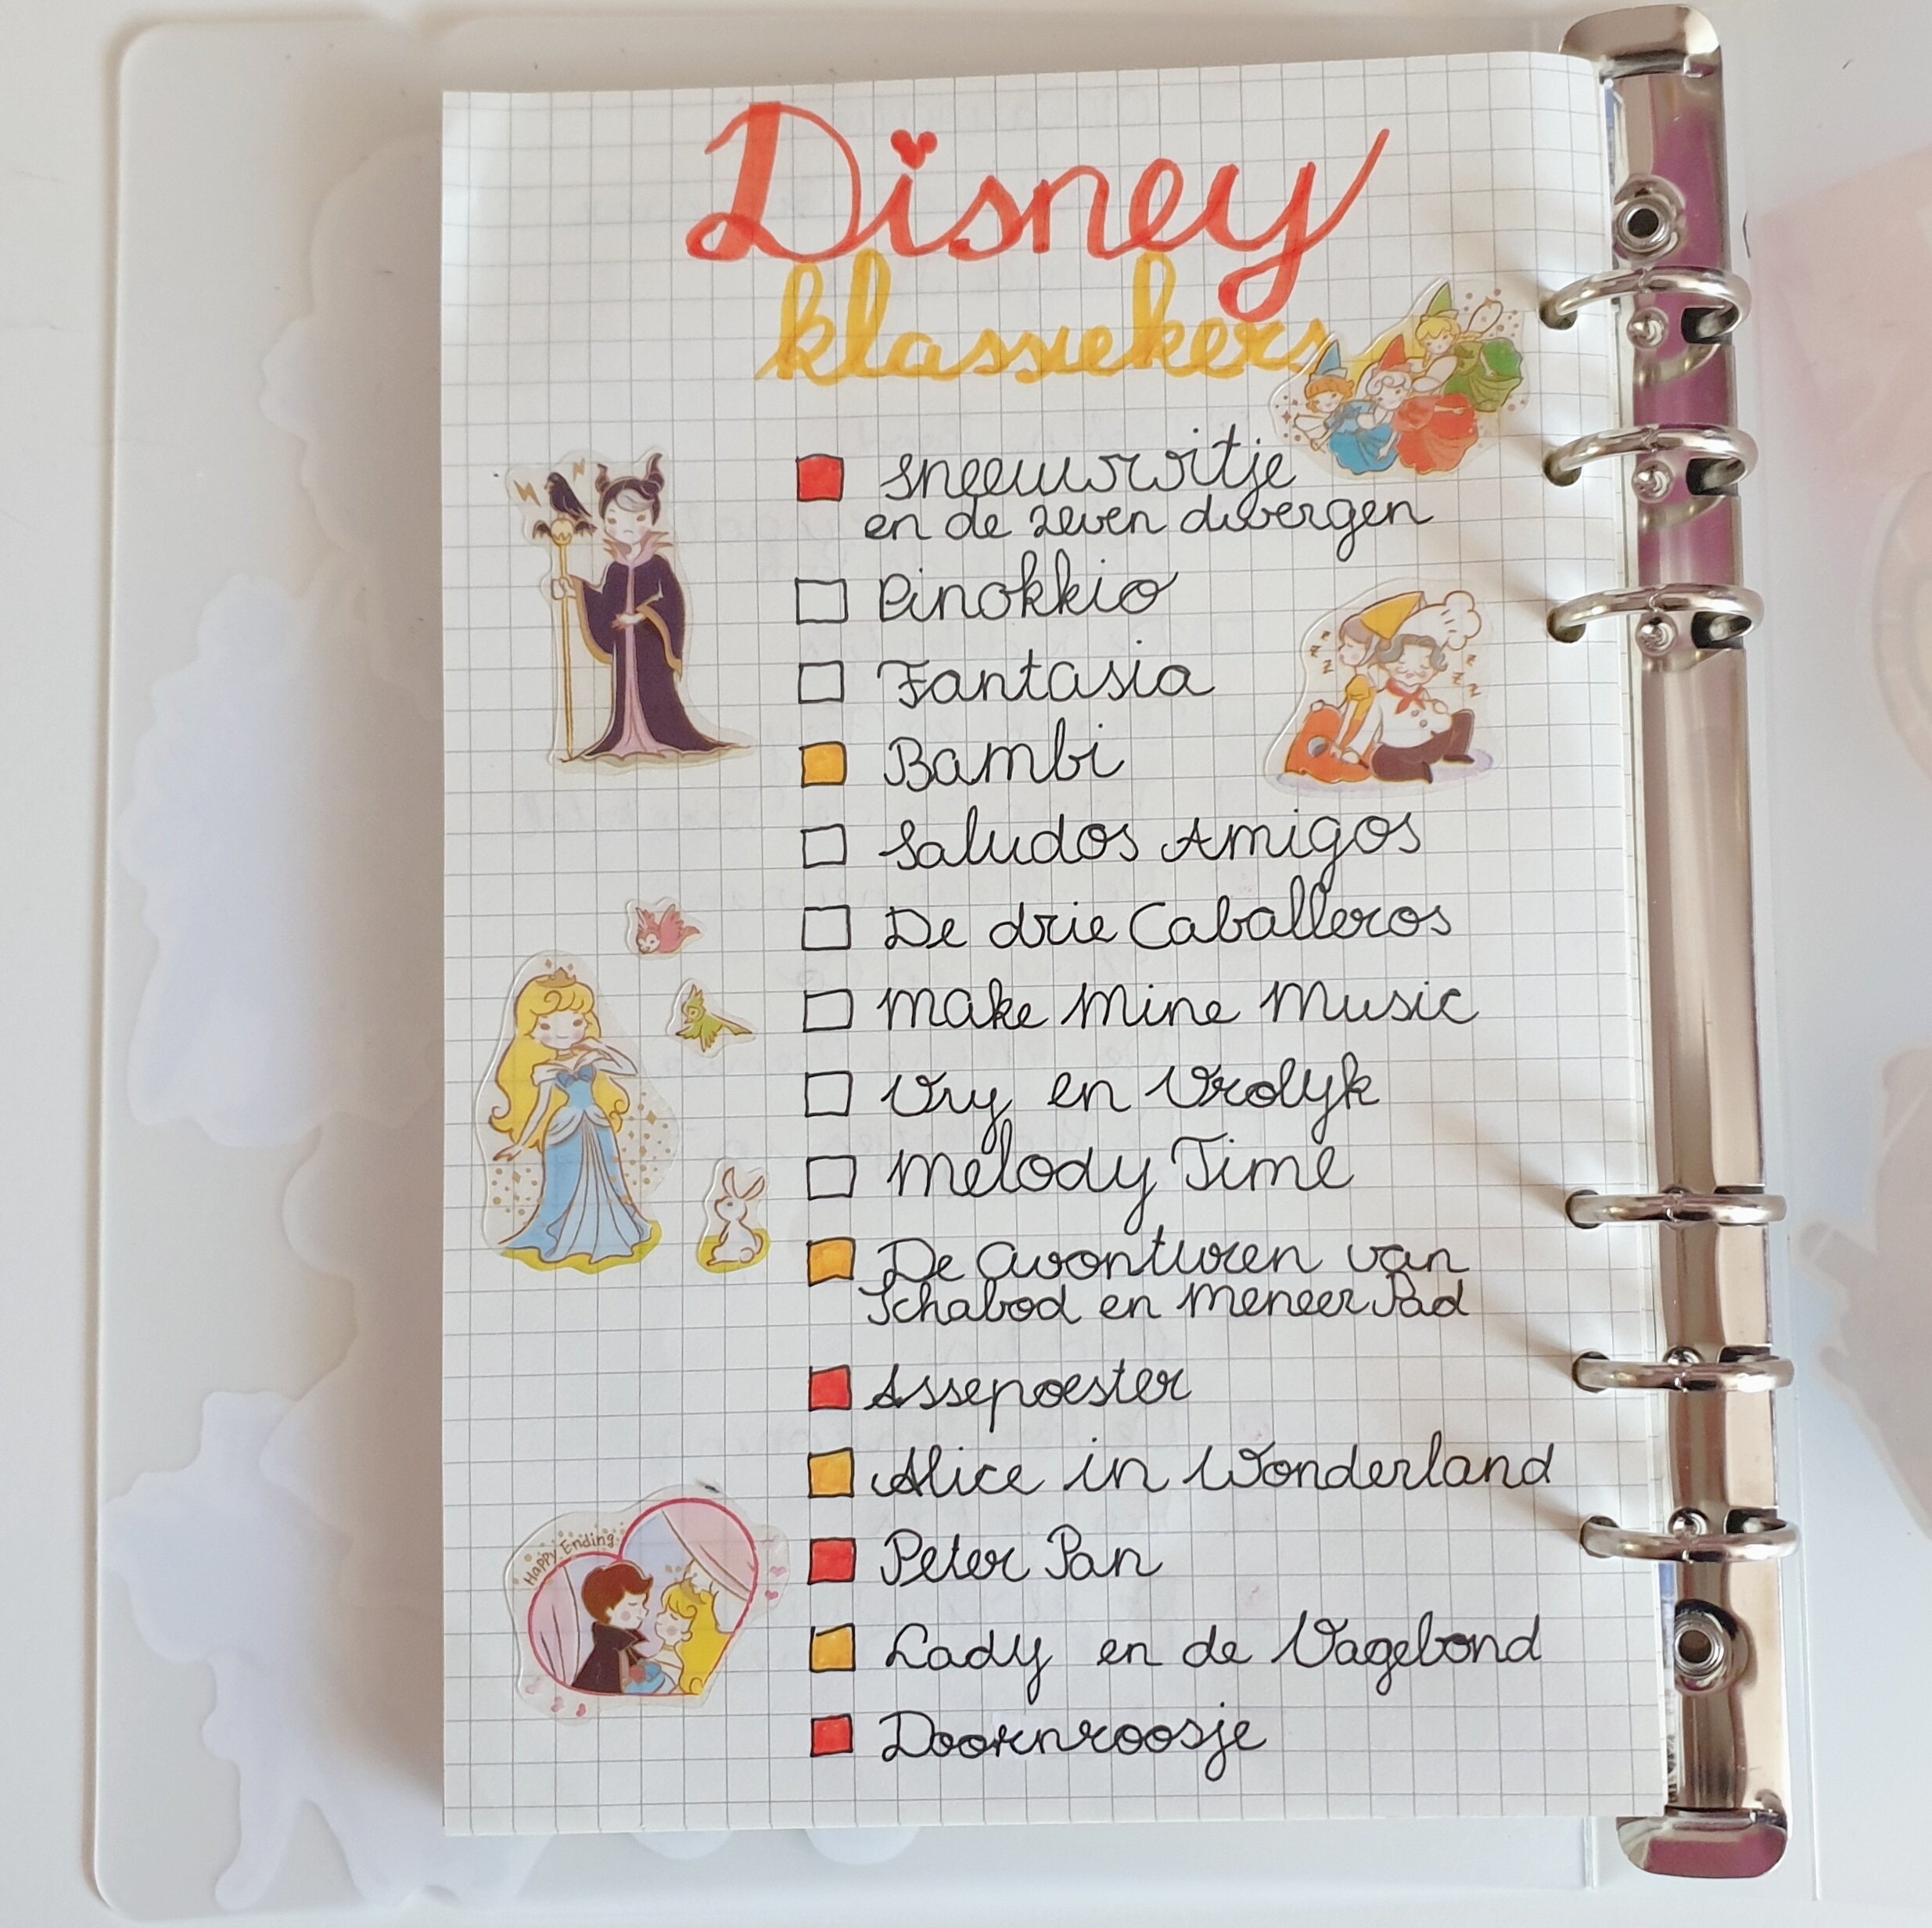 Disney
klassiekers
Sneeuwwitje
en de zeven dwergen
Pinokkio
Fantasia
Bambi
Saludos Amigos
De drie Caballeros
Make Mine Music
Vry en Vrolyk
Melody Time
De Avonturen van
Ichabod en Meneer Pad
Assepoester
Alice in Wonderland
Peter Pan
Lady en de Vagebond
Doornroosje
Happy Ending
z z z
z z z z